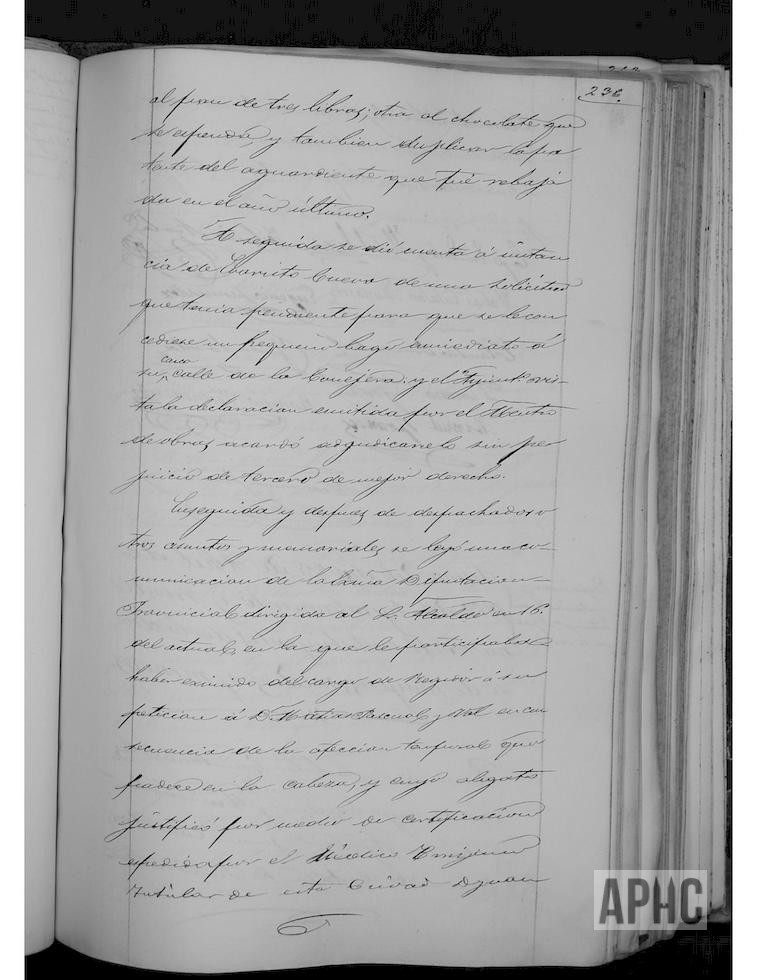 236.
al peso de tres libras; otro al chocolate que
se espenda, y tambien duplicar la pa
tente del aguardiente que fué rebaja
da en el año último.
A seguida se dió cuenta á instan
cia de Cueva de una solicitud
que tenia pendiente para que se le con
cediese un pequeño bago inmediato á
su casa calle de la Conejera: y el Ayunt.º vis-
ta la declaracion emitida por el Maestro
de obras acordó adjudicarselo sin per
juicio de tercero de mejor derecho.
Enseguida y despues de despachados o
tros asuntos y memoriales se leyó una co-
municacion de la Exma Diputacion
Provincial dirigida al Sr. Alcalde en 16
del actual, en la que le participaba
haber eximido del cargo de Regidor á su
peticion á D. Matias Pascual y Val en con
secuencia de la afeccion que
padece en la cabeza, y cuyo alegato
justificó por medio de certificacion
espedida por el Médico Cirujano
titular de esta Ciudad D Juan
APHC